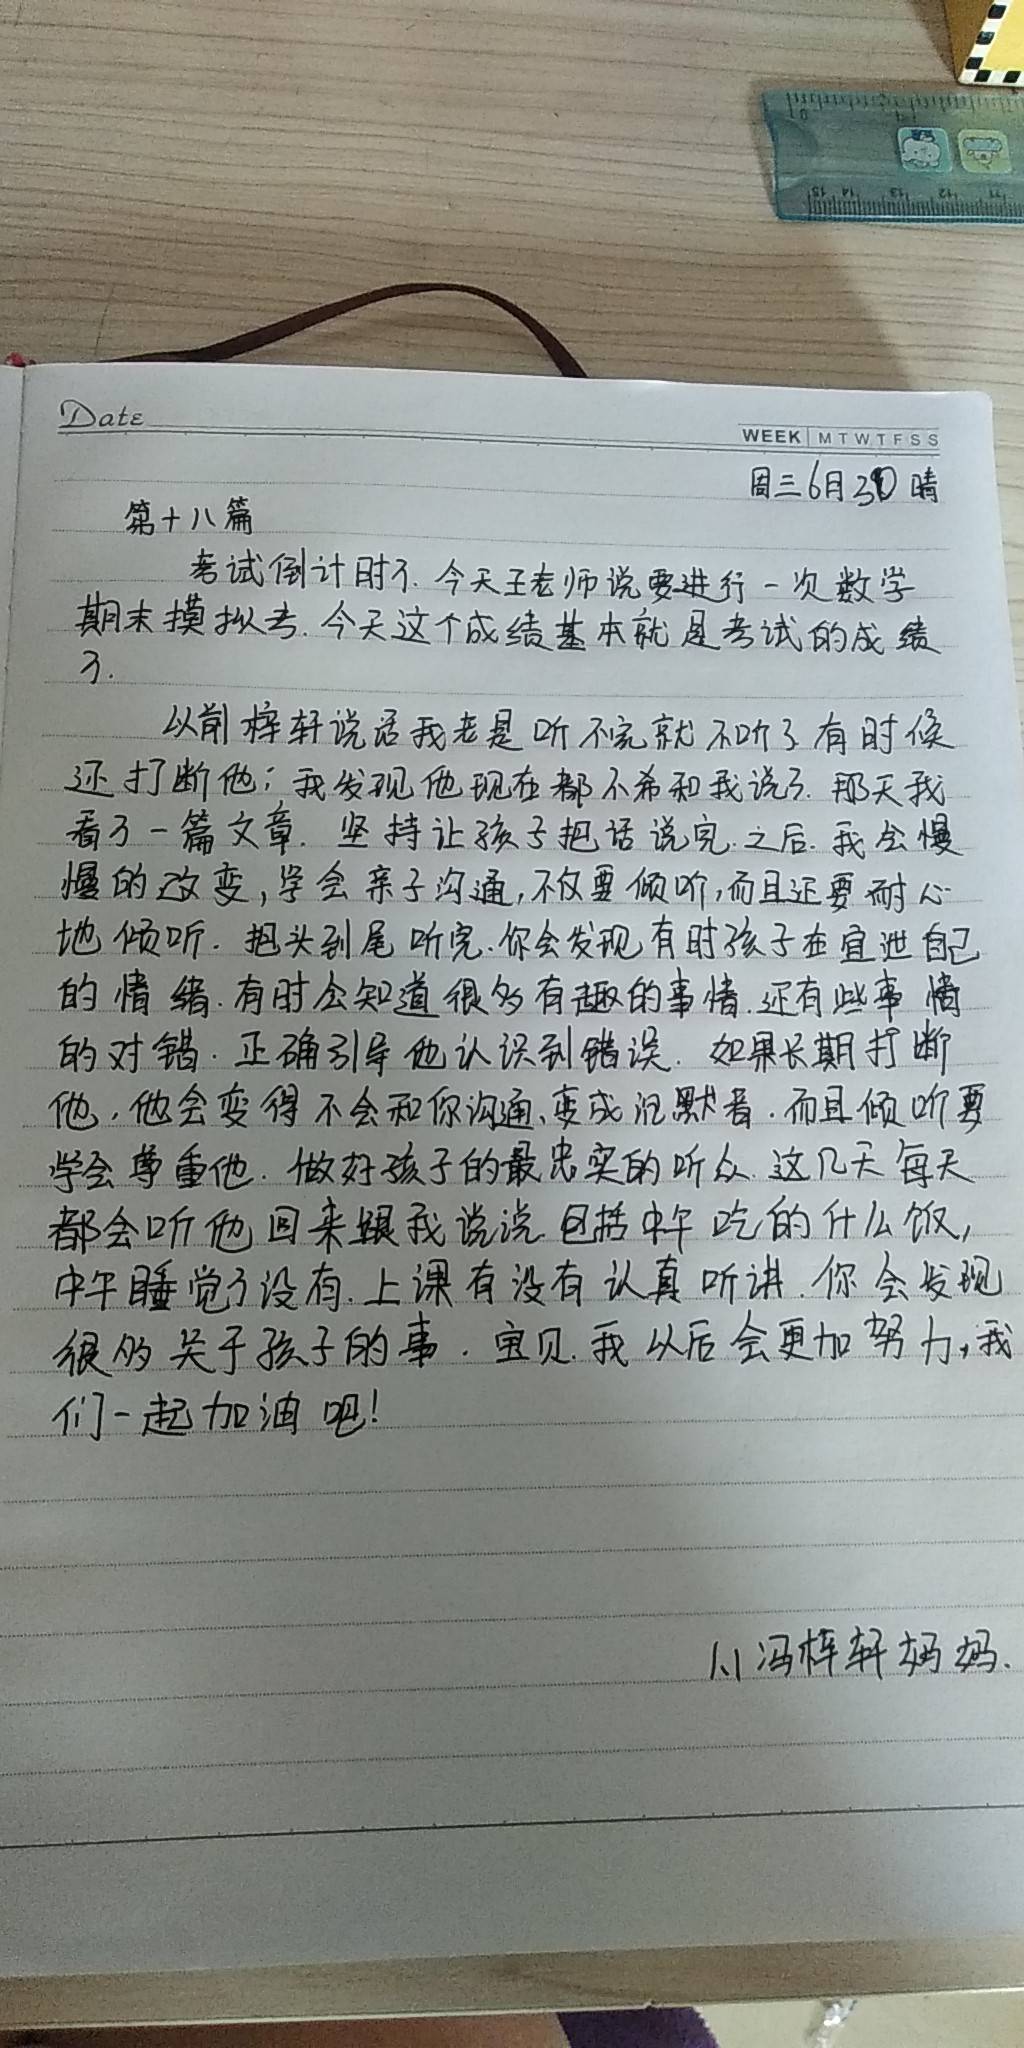 Date
WEEK M T W T F S S
周三6月30 晴
第十八篇
考试倒计时了.今天王老师说要进行一次数学
期末摸拟考.今天这个成绩基本就是考试的成绩
了.
以前梓轩说话我老是听不完就不听了有时候
还打断他;我发现他现在都不希和我说了.那天我
看了一篇文章.坚持让孩子把话说完.之后.我会慢
慢的改变,学会亲子沟通,不仅要倾听,而且还要耐心
地倾听.把头到尾听完.你会发现有时孩子在宣泄自己
的情绪.有时会知道很多有趣的事情.还有些事情
的对错.正确引导他认识到错误.如果长期打断
他,他会变得不会和你沟通、变成沉默者.而且倾听要
学会尊重他.做好孩子的最忠实的听众.这几天每天
都会听他回来跟我说说.包括中午吃的什么饭,
中午睡觉了没有.上课有没有认真听讲.你会发现
很多关于孩子的事.宝贝.我以后会更加努力,我
们一起加油吧!
1.1冯梓轩妈妈.
0
15 14 13 12 11